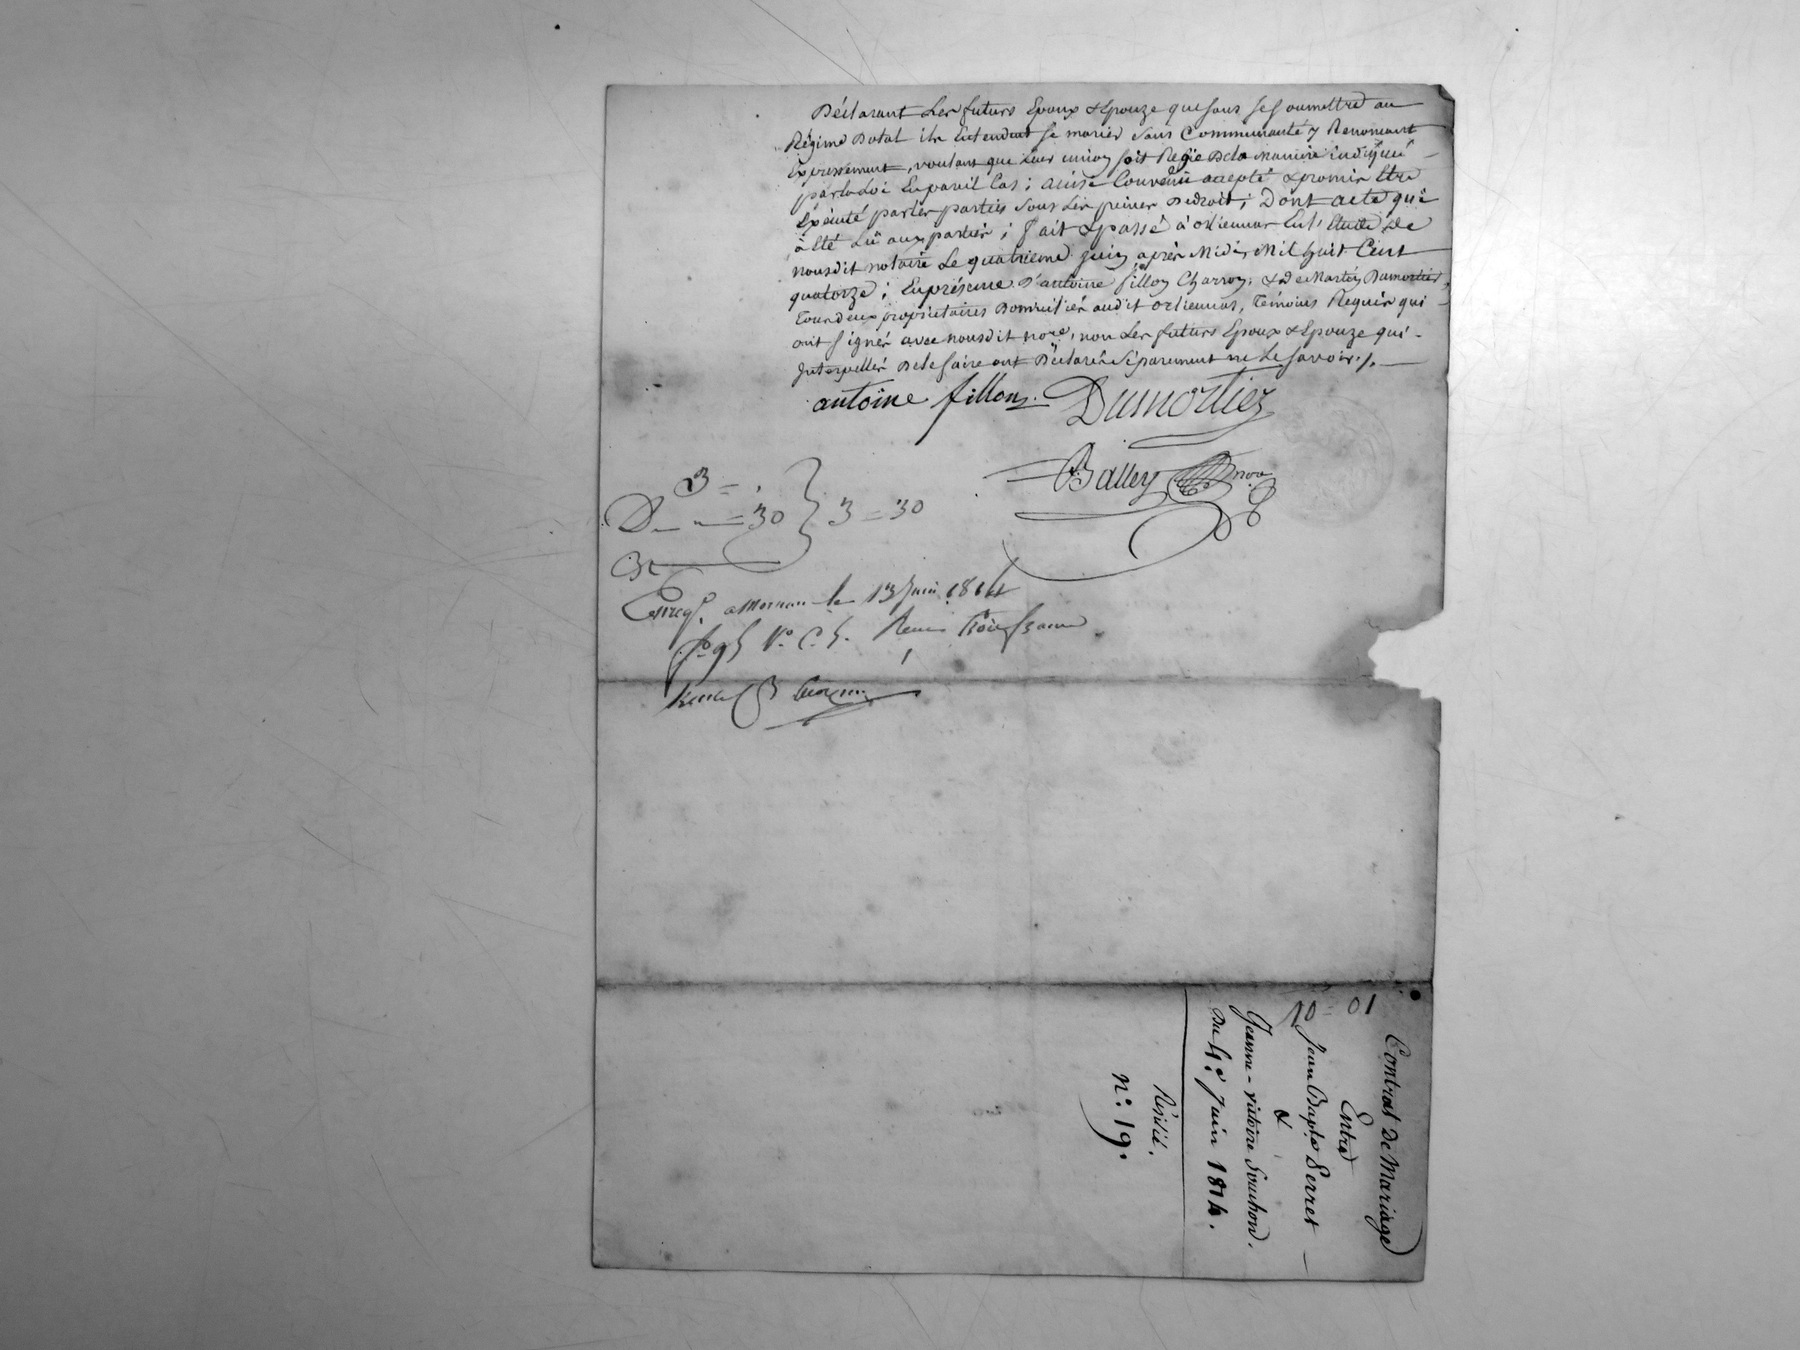 Déclarant Les futurs Epoux & Epouze que sans se soumettre au
Régime Dotal ils Entendent se marier sans Communauté y Renoncant
Expressément, voulant que Leur union soit Régie De la maniere indiquée
par la Loi En pareil Cas; ainsi Convenu accepté & promis Etre
Exécuté par les parties sous Les peines De droit; Dont acte qui
à été Lû aux parties; fait & passé à orliennas En l'Etude De
nousdit notaire Le quatrieme juin après Midi, Mil huit Cent
quatorze; En présence D'antoine fillon Charron, & De Martin Dumortier,
Tous deux propriétaires Domiciliés audit orliennas, Témoins Requis qui
ont signés avec nousdit nore, non Les futurs Epoux & Epouze qui
Interpellés De le faire ont Déclarés Séparement ne Le savoir ./.
antoine fillon. Dumortier
Balley nore
3 =
D = 30 } 3 = 30
Enregt. a Mornant le 13 Juin 1814
fo 95 Vo C. 5. Reçu trois francs
10 = 01
Contrat De Mariage
Entre
Jean Bapte Perret
&
Jeanne-victoire Souchon.
Du 4e. Juin 1814.
Résilié.
n: 19.